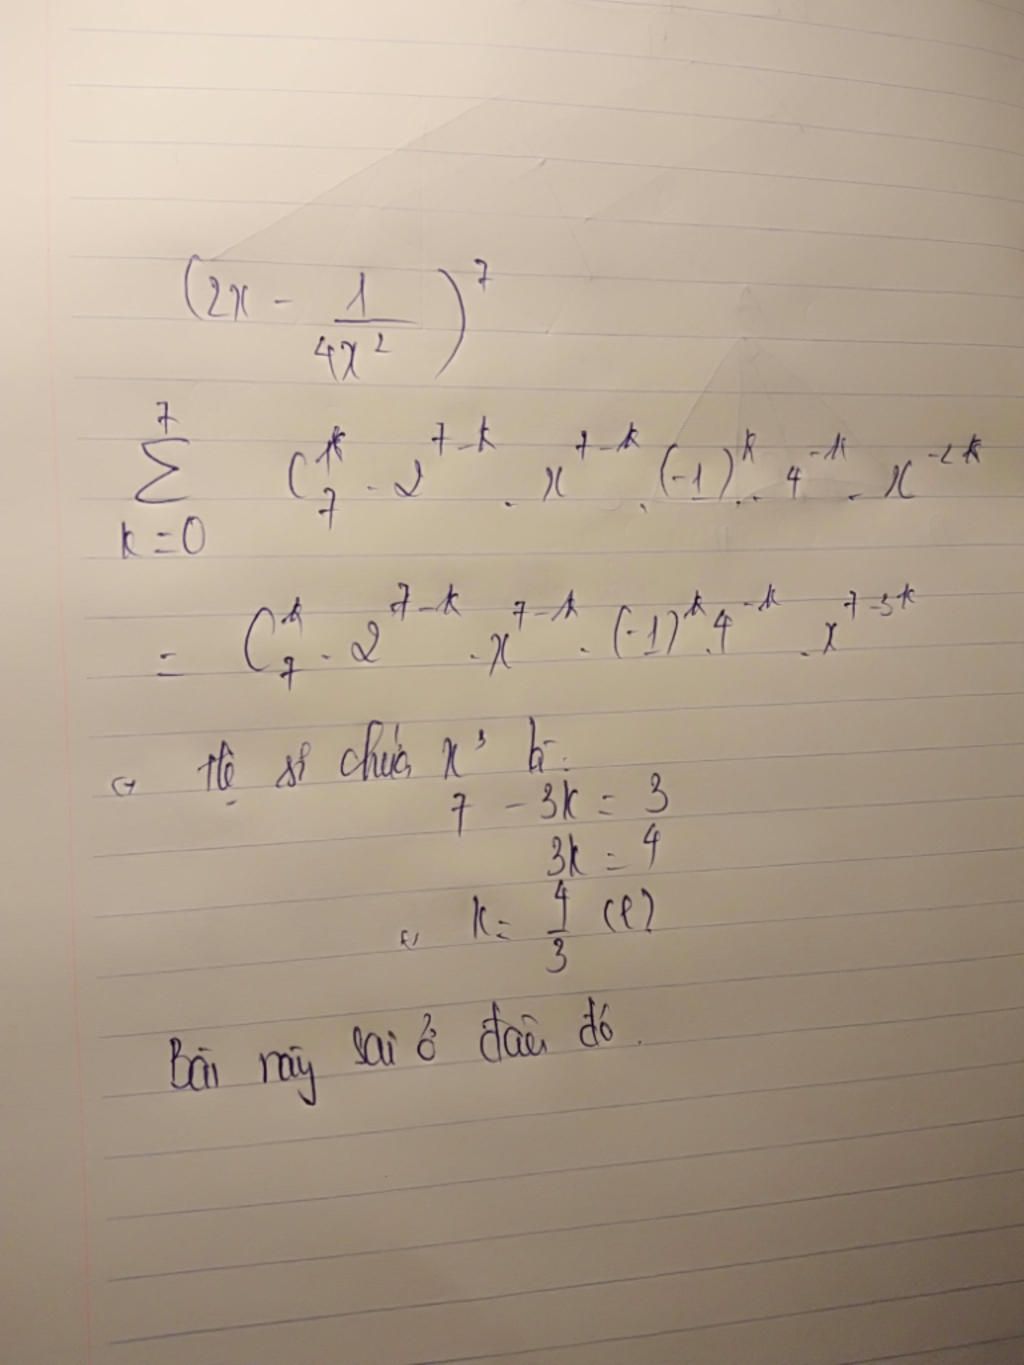 (2x - 1/4x²)⁷
7
∑ C₇ᵏ . 2⁷⁻ᵏ . x⁷⁻ᵏ . (-1)ᵏ . 4⁻ᵏ . x⁻²ᵏ
k = 0
= C₇ᵏ . 2⁷⁻ᵏ . x⁷⁻ᵏ . (-1)ᵏ . 4⁻ᵏ . x⁷⁻³ᵏ
Hệ số chứa x³ là:
7 - 3k = 3
3k = 4
k = 4/3 (l)
Bài này sai ở đâu đó.